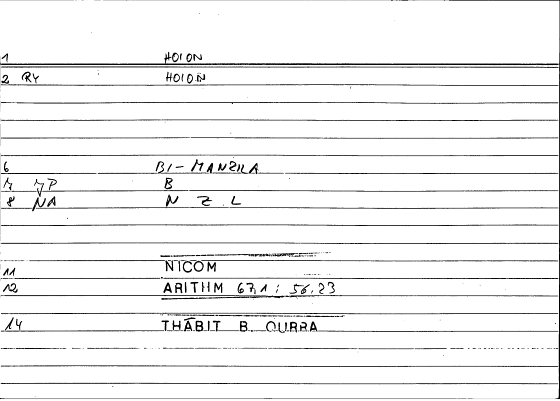 1 HOION
2 RY HOION
6 BI-MANZILA
7 7P B
8 NA N Z L
11 NICOM
12 ARITHM 67,1 : 56.23
14 THĀBIT B. QURRA